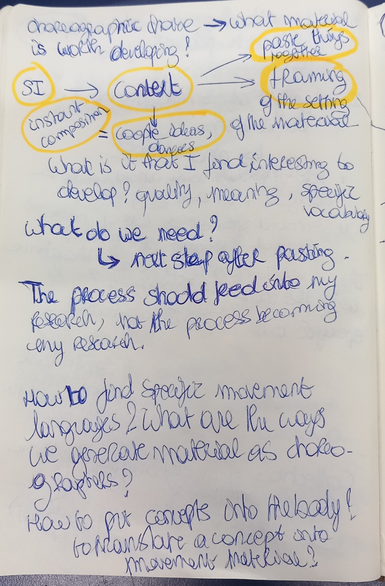 choreographic choice → what material
is worth developing?
paste things
together
SI → Context → framing
of the setting
instant
composition
= Google ideas,
dances
of the material
What is it that I find interesting to
develop? quality, meaning, specific
vocabulary
What do we need?
↳ next step after pasting.
The process should feed into my
research, not the process becoming
my research.
How to find specific movement
languages? What are the ways
we generate material as choreo-
graphers?
How to put concepts into the body?
to translate a concept into
movement material?